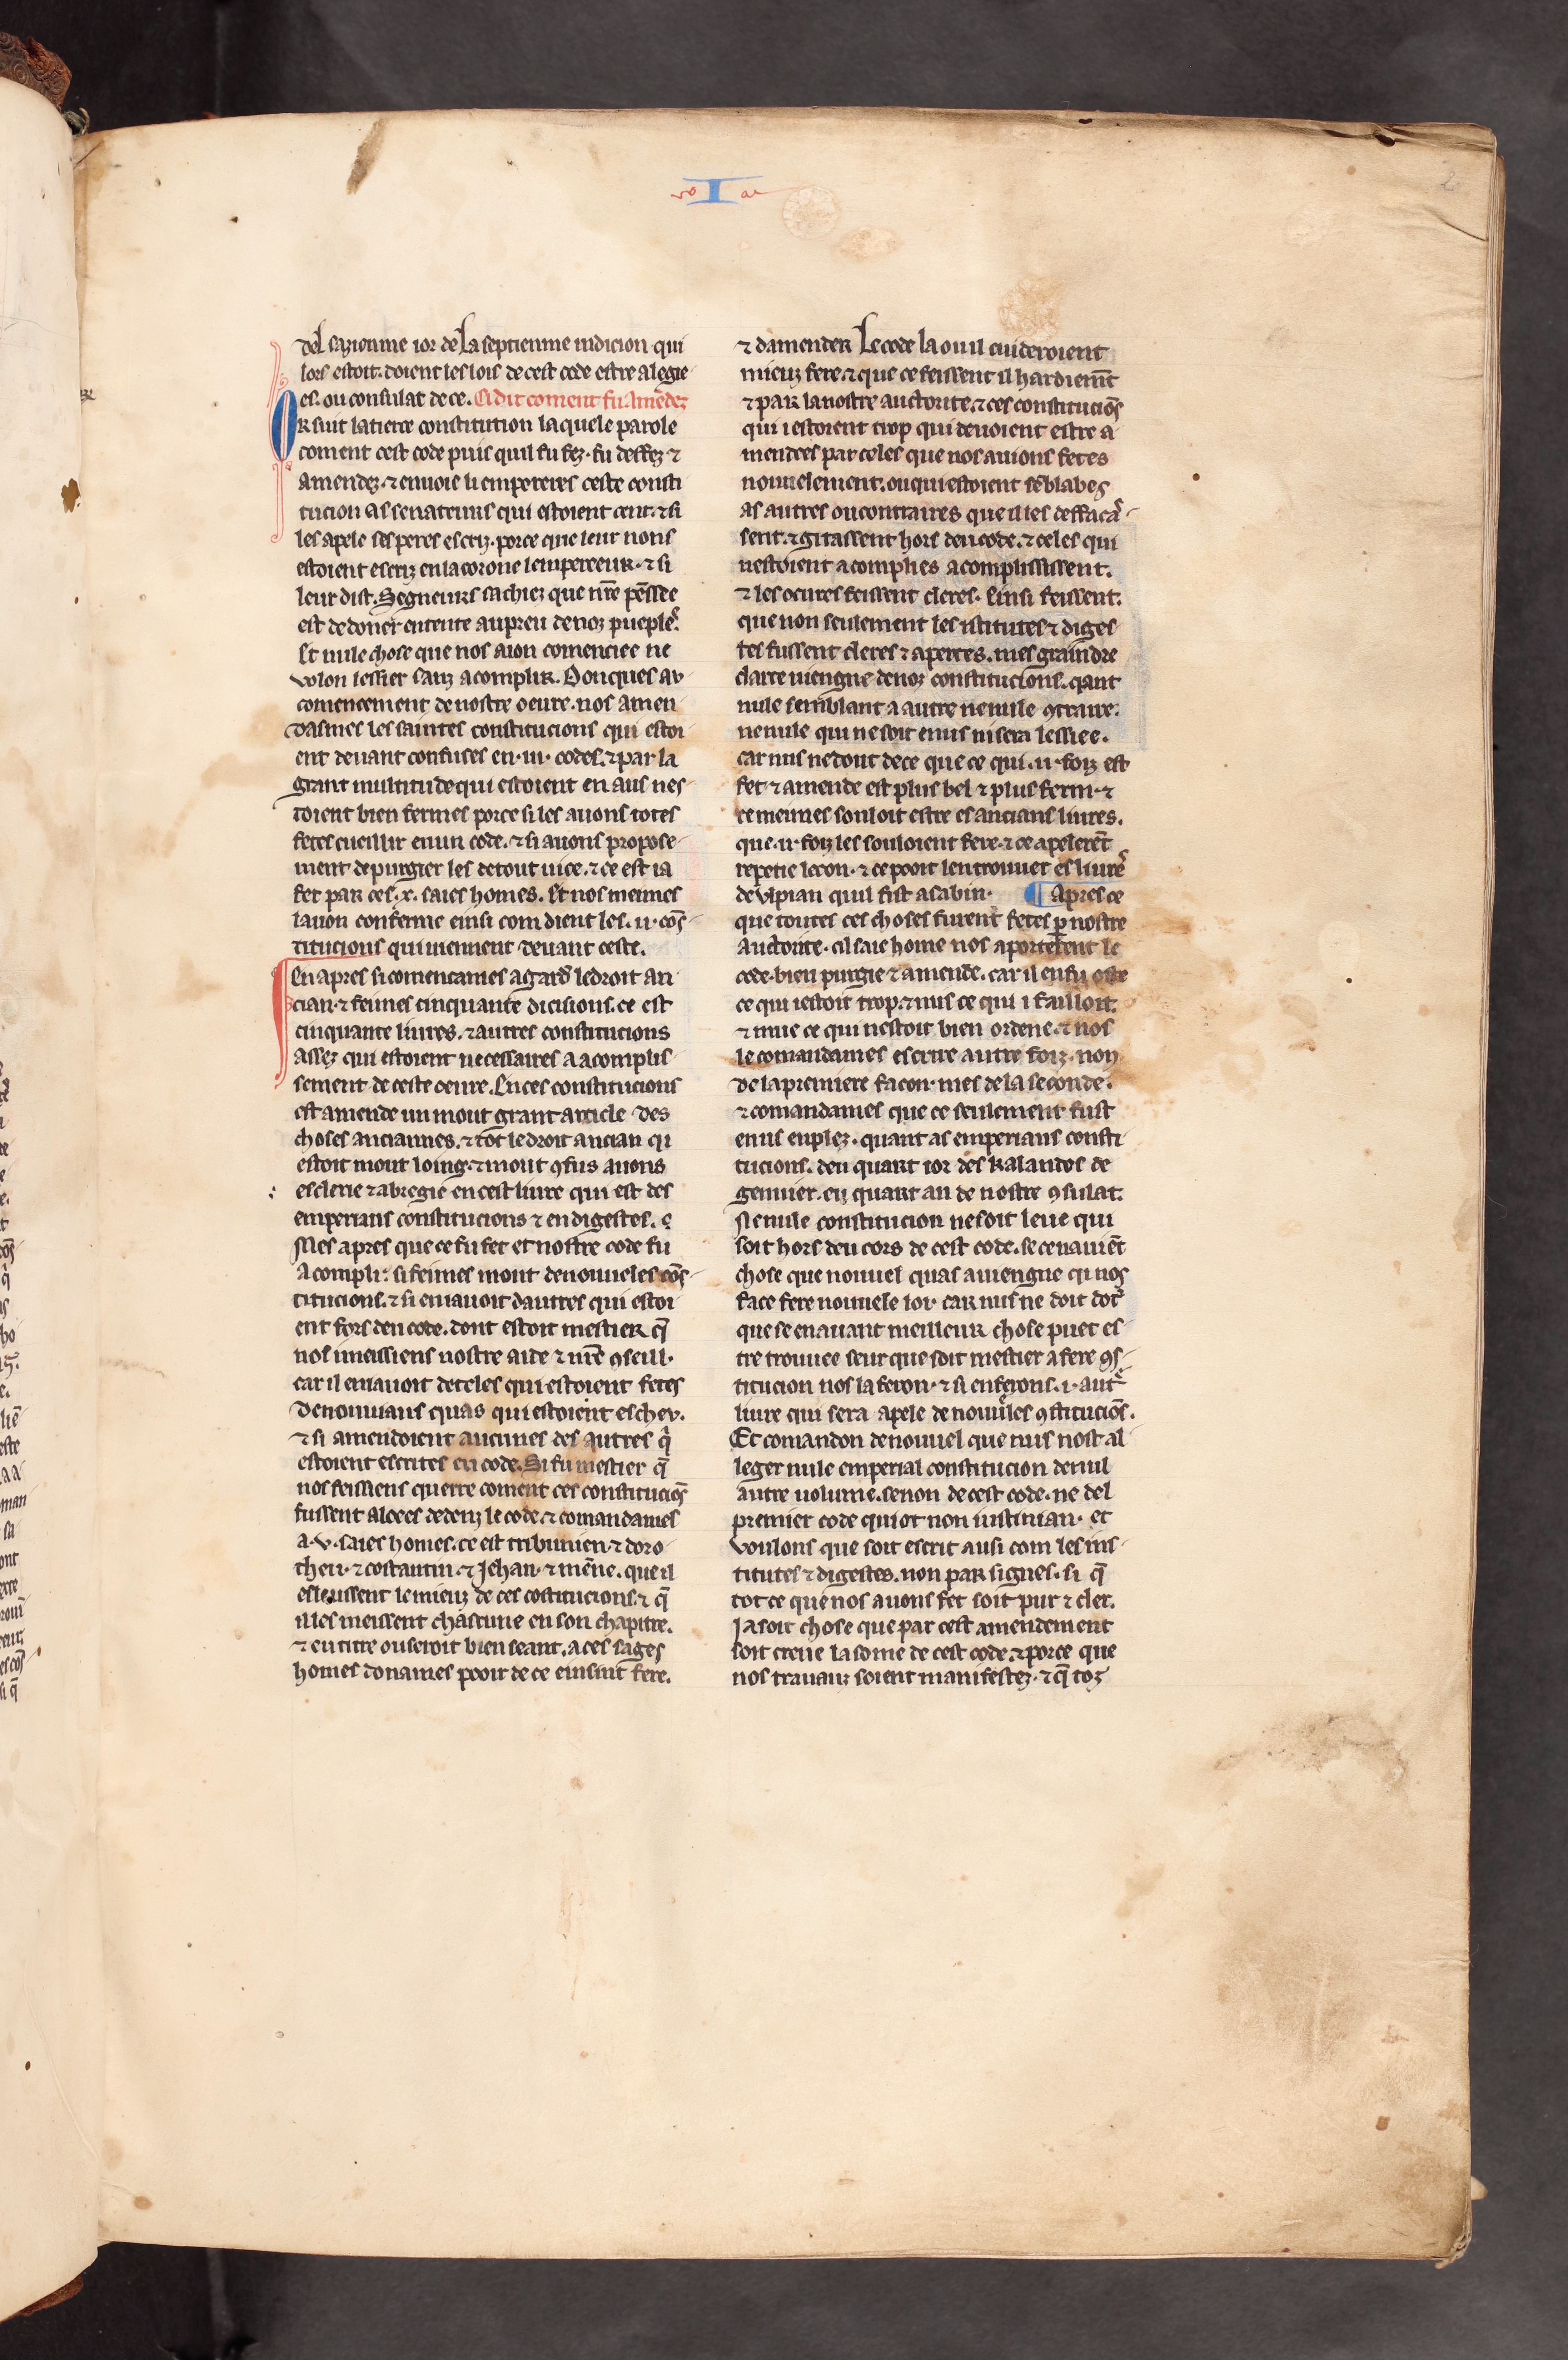 I
2
del sazioinme ior de La septienme indicion qui
lors estoit. doient les lois de cest code estre alegie
es. ou consulat de ce. Ci dit coment fu amẽdez
OR suit la tierce constitution la quele parole
coment cest code puis quil fu fez. fu deffez ⁊
amendez. ⁊ enuoie li empereres ceste consti
tucion as senateurs qui estoient cent. ⁊ si
les apele ses peres escriz. porce que leur nons
estoient escriz en la corone lempereeur. ⁊ si
leur dist. Segneurs sachiez que nr̃e pẽssee
est de doner entente au preu de noz pueples.
Et nule chose que nos aion comenciee ne
volon lessier sanz acomplir. Donques av
comencement de nostre oeure. nos amen
dasmes les saintes constitucions qui estoi
ent deuant confuses en .iii. codes. ⁊ par la
grant multitude qui estoient en aus nes
toient bien fermes porce si les auons totes
fetes cueillir en un code. ⁊ si auons propose
ment de purgier les de tout uice. ⁊ ce est ia
fet par ces .x. saies homes. Et nos meimes
lauon conferme einsi com dient les .ii. cõs
titucions qui uiennent deuant ceste.
En apres si comencames a gard̉ le droit an
cian. ⁊ feimes cinquante dicisions. ce est
cinquante liures. ⁊ autres constitucions
assez qui estoient necessaires a acomplis
sement de ceste oeure. En ces constitucions
est amende un mout grant article des
choses anciannes. ⁊ tot le droit ancian qi
estoit mout loing. ⁊ mout ꝯfus auons
esclerie ⁊ abregie en cest liure qui est des
emperiaus constitucions ⁊ en digestes. ⁊
Mes apres que ce fu fet et nostre code fu
acompli: si feimes mout de nouueles cõs
titucions. ⁊ si en iauoit dautres qui estoi
ent fors deu code. dont estoit mestier q̃
nos i meissiens nostre aide ⁊ nr̃e ꝯseill.
car il en iauoit de celes qui estoient fetes
de nouuiaus quas qui estoient eschev.
⁊ si amendoient aucunes des autres q̉
estoient escrites eu code. Si fu mestier q̃
nos feissiens querre coment ces constituciõs
fussent aloees dedenz le code. ⁊ comandames
a .v. saies homes. ce est tribunien. ⁊ doro
theu. ⁊ costantin. ⁊ Jehan. ⁊ mẽne. que il
esleussent le mieuz de ces costitucions. ⁊ q̃
il les meissent chascune en son chapitre.
⁊ en titre ou seroit bien seant. a ces sages
homes donames pooir de ce einsint fere.
⁊ damender Le code la ou il cuideroient
mieuz fere. ⁊ que ce feissent il hardiemẽt
⁊ par la nostre auctorite. ⁊ ces constituciõs
qui i estoient trop qui deuoient estre a
mendees par celes que nos auions fetes
nouuelement. ou qui estoient sẽblabes
as autres ou contraires que il les deffacas̉
sent. ⁊ gitassent hors deu code. ⁊ celes qui
nestoient acomplies acomplississent.
⁊ les oeures feissent cleres. Einsi feissent.
que non seulement les istitutes ⁊ diges
tes fussent cleres ⁊ apertes. mes graindre
clarte uiengne de noz constitucions. qant
nule semblant a autre ne nule ꝯtraire.
ne nule qui ne soit en us ni sera lessiee.
car nus ne dout de ce que ce qui .ii. foiz est
fet ⁊ amende est plus bel ⁊ plus ferm. ⁊
ce meimes souloit estre es ancians liures.
que .ii. foiz les souloient fere. ⁊ ce apelerẽt
repetie lecon. ⁊ ce pooit len trouuer es liures̉
de vlpian quil fist a sabin. ¶ Apres ce
que toutes ces choses furent fetes ꝑ nostre
auctorite. cil saie home nos aporterent le
code bien purgie ⁊ amende. car il en fu oste
ce qui i estoit trop. ⁊ mis ce qui i failloit.
⁊ mue ce qui nestoit bien ordene. ⁊ nos
le comandames escrire autre foiz. non
de la premiere facon. mes de la seconde.
⁊ comandames que ce seulement fust
en us en plez. quant as emperiaus consti
tucions. deu quart ior des kalandes de
genuier. eu quart an de nostre ꝯsulat.
Ne nule constitucion ne soit leue qui
soit hors deu cors de cest code. se ce nauiẽt
chose que nouuel quas auiengne qi nos
face fere nouuele loi. car nus ne doit dot̉
que se en auant meilleur chose puet es
tre trouuee seur que soit mestier a fere ꝯs
titucion nos la feron. ⁊ si en ferons .i. autr̉e
liure qui sera apele de nouueles ꝯstituciõs.
Et comandon de nouuel que nus nost al
leger nule emperial constitucion de nul
autre uolume. se non de cest code. ne del
premier code qui ot non iustinian. et
voulons que soit escrit ausi com les ins
titutes ⁊ digestes. non par signes. si q̃
tot ce que nos auons fet soit pur ⁊ cler.
Ja soit chose que par cest amendement
soit creue la some de cest code. ⁊ porce que
nos trauauz soient manifestez. ⁊ q̃ toz